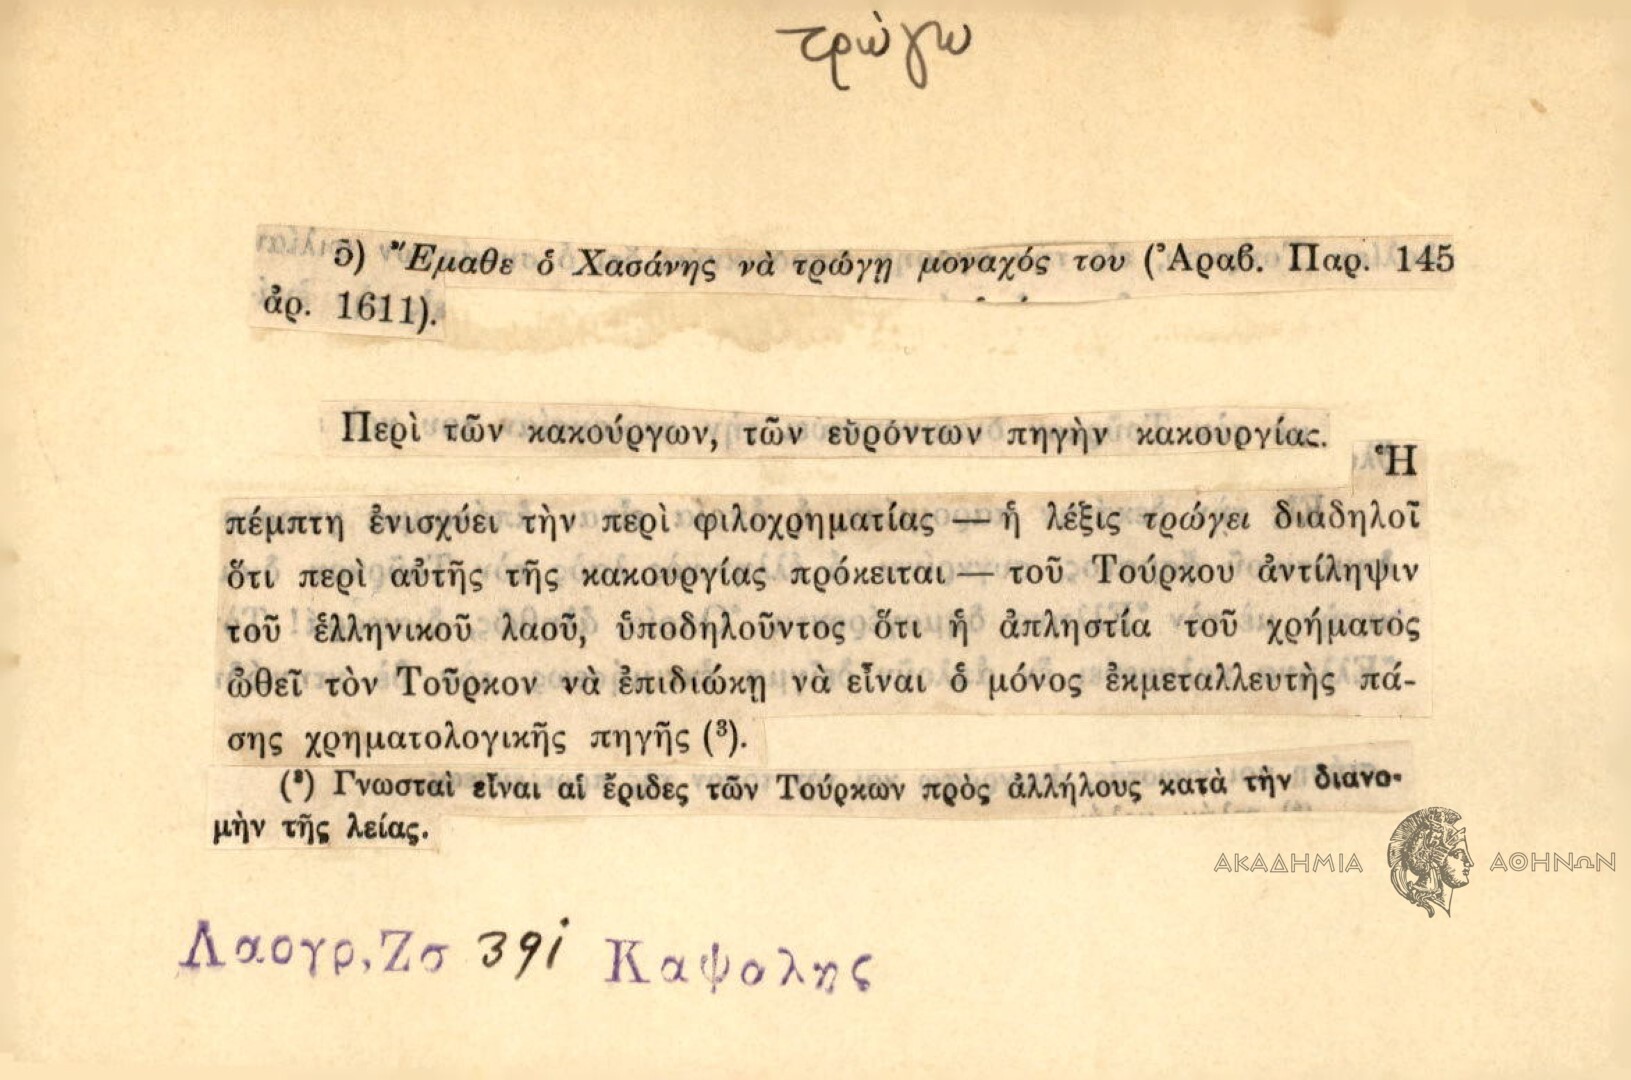 τρώγω
δ) Ἔμαθε ὁ Χασάνης νὰ τρώγῃ μοναχός του (Ἀραβ. Παρ. 145
ἀρ. 1611).
Περὶ τῶν κακούργων, τῶν εὑρόντων πηγὴν κακουργίας.
Ἡ
πέμπτη ἐνισχύει τὴν περὶ φιλοχρηματίας — ἡ λέξις τρώγει διαδηλοῖ
ὅτι περὶ αὐτῆς τῆς κακουργίας πρόκειται — τοῦ Τούρκου ἀντίληψιν
τοῦ ἑλληνικοῦ λαοῦ, ὑποδηλοῦντος ὅτι ἡ ἀπληστία τοῦ χρήματος
ὠθεῖ τὸν Τοῦρκον νὰ ἐπιδιώκῃ νὰ εἶναι ὁ μόνος ἐκμεταλλευτὴς πά-
σης χρηματολογικῆς πηγῆς (³).
(³) Γνωσταὶ εἶναι αἱ ἔριδες τῶν Τούρκων πρὸς ἀλλήλους κατὰ τὴν διανο-
μὴν τῆς λείας.
ΑΚΑΔΗΜΙΑ ΑΘΗΝΩΝ
Λαογρ, Ζσ 391 Καψαλης